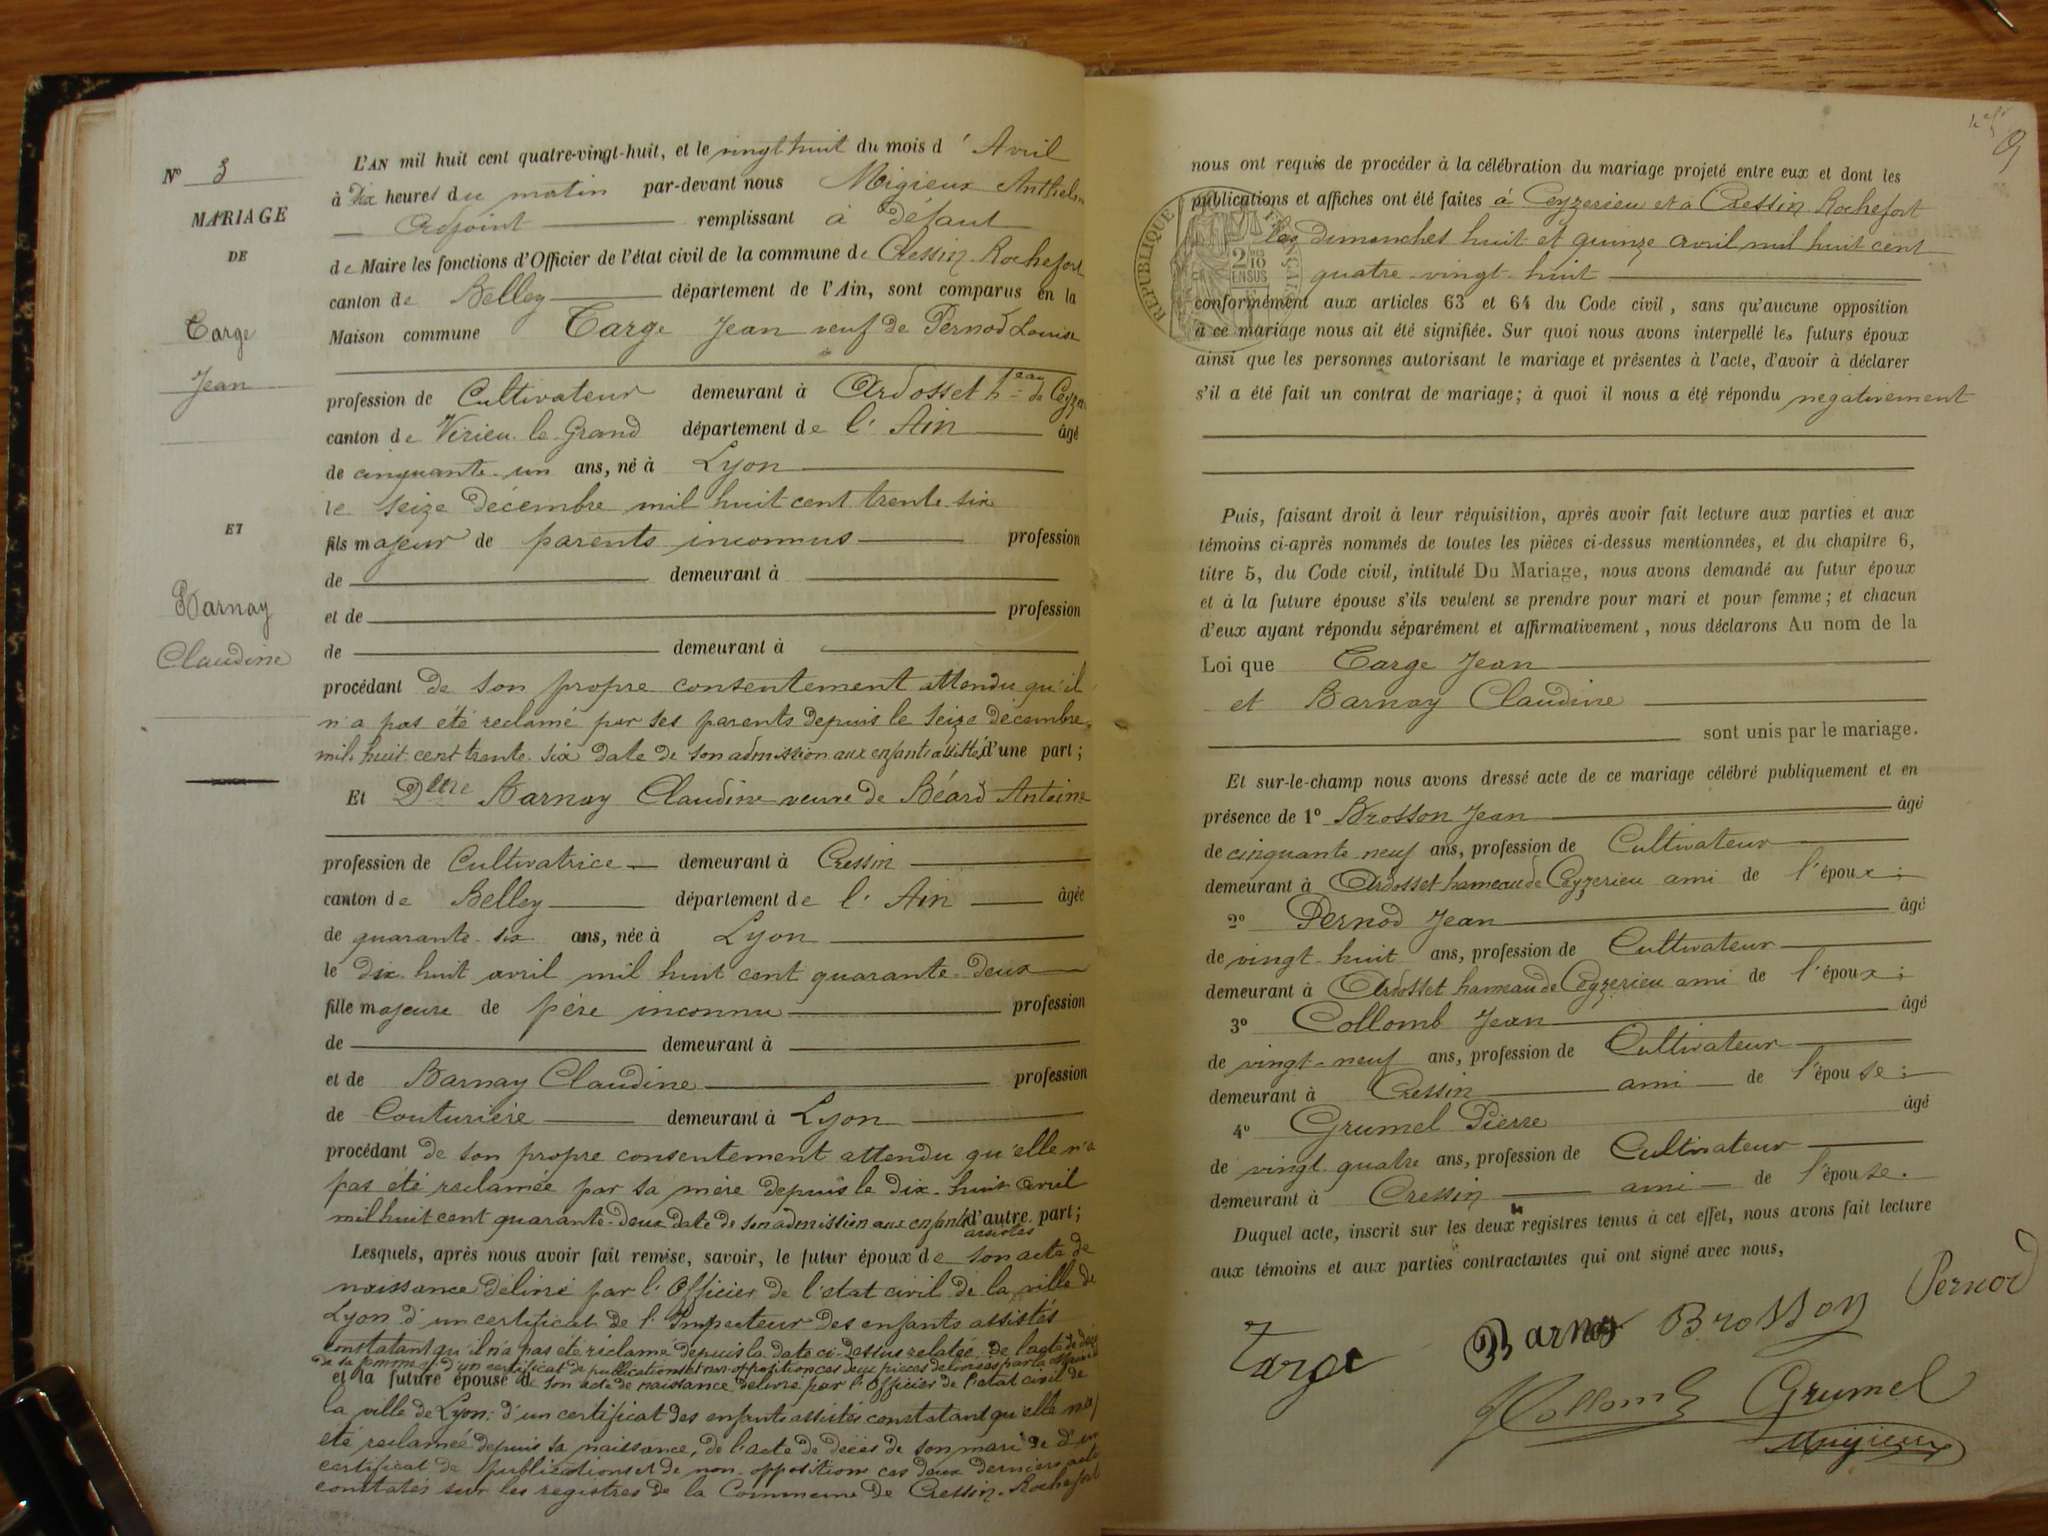 N° 3
MARIAGE
DE
Targe
Jean
ET
Barnay
Claudine
L'AN mil huit cent quatre-vingt-huit, et le vingt huit du mois d'Avril
à Dix heures du matin par-devant nous Migieux Anthelm
Adjoint remplissant à Défaut
de Maire les fonctions d'Officier de l'état civil de la commune de Cressin-Rochefort
canton de Belley département de l'Ain, sont comparus en la
Maison commune Targe Jean veuf de Pernod Louise
profession de Cultivateur demeurant à Ardosset heau de Ceyze
canton de Virieu-le-Grand département de l'Ain âgé
de cinquante-un ans, né à Lyon
le seize décembre mil huit cent trente-six
fils majeur de parents inconnus profession
de demeurant à
et de profession
de demeurant à
procédant de son propre consentement attendu qu'il
n'a pas été réclamé par ses parents depuis le seize décembre
mil huit cent trente six date de son admission aux enfants assistés d'une part;
Et Delle Barnay Claudine veuve de Béard Antoine
profession de Cultivatrice demeurant à Cressin
canton de Belley département de l'Ain âgée
de quarante-six ans, née à Lyon
le dix-huit avril mil huit cent quarante-deux
fille majeure de père inconnu profession
de demeurant à
et de Barnay Claudine profession
de Couturière demeurant à Lyon
procédant de son propre consentement attendu qu'elle n'a
pas été réclamée par sa mère depuis le dix-huit avril
mil huit cent quarante-deux date de son admission aux enfants d'autre part;
assistés
Lesquels, après nous avoir fait remise, savoir, le futur époux de son acte de
naissance délivré par l'Officier de l'état civil de la ville de
Lyon d'un certificat de l'Inspecteur des enfants assistés
constatant qu'il n'a pas été réclamé depuis la date ci-dessus relatée de l'acte de décès
de sa femme et d'un certificat de publications et non opposition ces deux pièces délivrées par la
et la future épouse de son acte de naissance délivré par l'Officier de l'état civil de
la ville de Lyon; d'un certificat des enfants assistés constatant qu'elle n'a
été réclamée depuis sa naissance, de l'acte de décès de son mari de d'un
certificat de publications et de non-opposition ces deux derniers acte
constatés sur les registres de la Commune de Cressin-Rochefort
9
nous ont requis de procéder à la célébration du mariage projeté entre eux et dont les
publications et affiches ont été faites à Ceyzerieu et à Cressin Rochefort
les dimanches huit et quinze avril mil huit cent
quatre-vingt-huit
conformément aux articles 63 et 64 du Code civil, sans qu'aucune opposition
à ce mariage nous ait été signifiée. Sur quoi nous avons interpellé les futurs époux
ainsi que les personnes autorisant le mariage et présentes à l'acte, d'avoir à déclarer
s'il a été fait un contrat de mariage; à quoi il nous a été répondu négativement
RÉPUBLIQUE FRANÇAISE
2 DES 10
EN SUS
Puis, faisant droit à leur réquisition, après avoir fait lecture aux parties et aux
témoins ci-après nommés de toutes les pièces ci-dessus mentionnées, et du chapitre 6,
titre 5, du Code civil, intitulé Du Mariage, nous avons demandé au futur époux
et à la future épouse s'ils veulent se prendre pour mari et pour femme; et chacun
d'eux ayant répondu séparément et affirmativement, nous déclarons Au nom de la
Loi que Targe Jean
et Barnay Claudine
sont unis par le mariage.
Et sur-le-champ nous avons dressé acte de ce mariage célébré publiquement et en
présence de 1° Brosson Jean âgé
de cinquante neuf ans, profession de Cultivateur
demeurant à Ardosset hameau de Ceyzerieu ami de l'époux;
2° Pernod Jean âgé
de vingt-huit ans, profession de Cultivateur
demeurant à Ardosset hameau de Ceyzerieu ami de l'époux;
3° Collomb Jean âgé
de vingt-neuf ans, profession de Cultivateur
demeurant à Cressin ami de l'épouse;
4° Grumel Pierre âgé
de vingt quatre ans, profession de Cultivateur
demeurant à Cressin ami de l'épouse.
Duquel acte, inscrit sur les deux registres tenus à cet effet, nous avons fait lecture
aux témoins et aux parties contractantes qui ont signé avec nous,
Targe Barnay Brosson Pernod
Collomb Grumel
Migieux